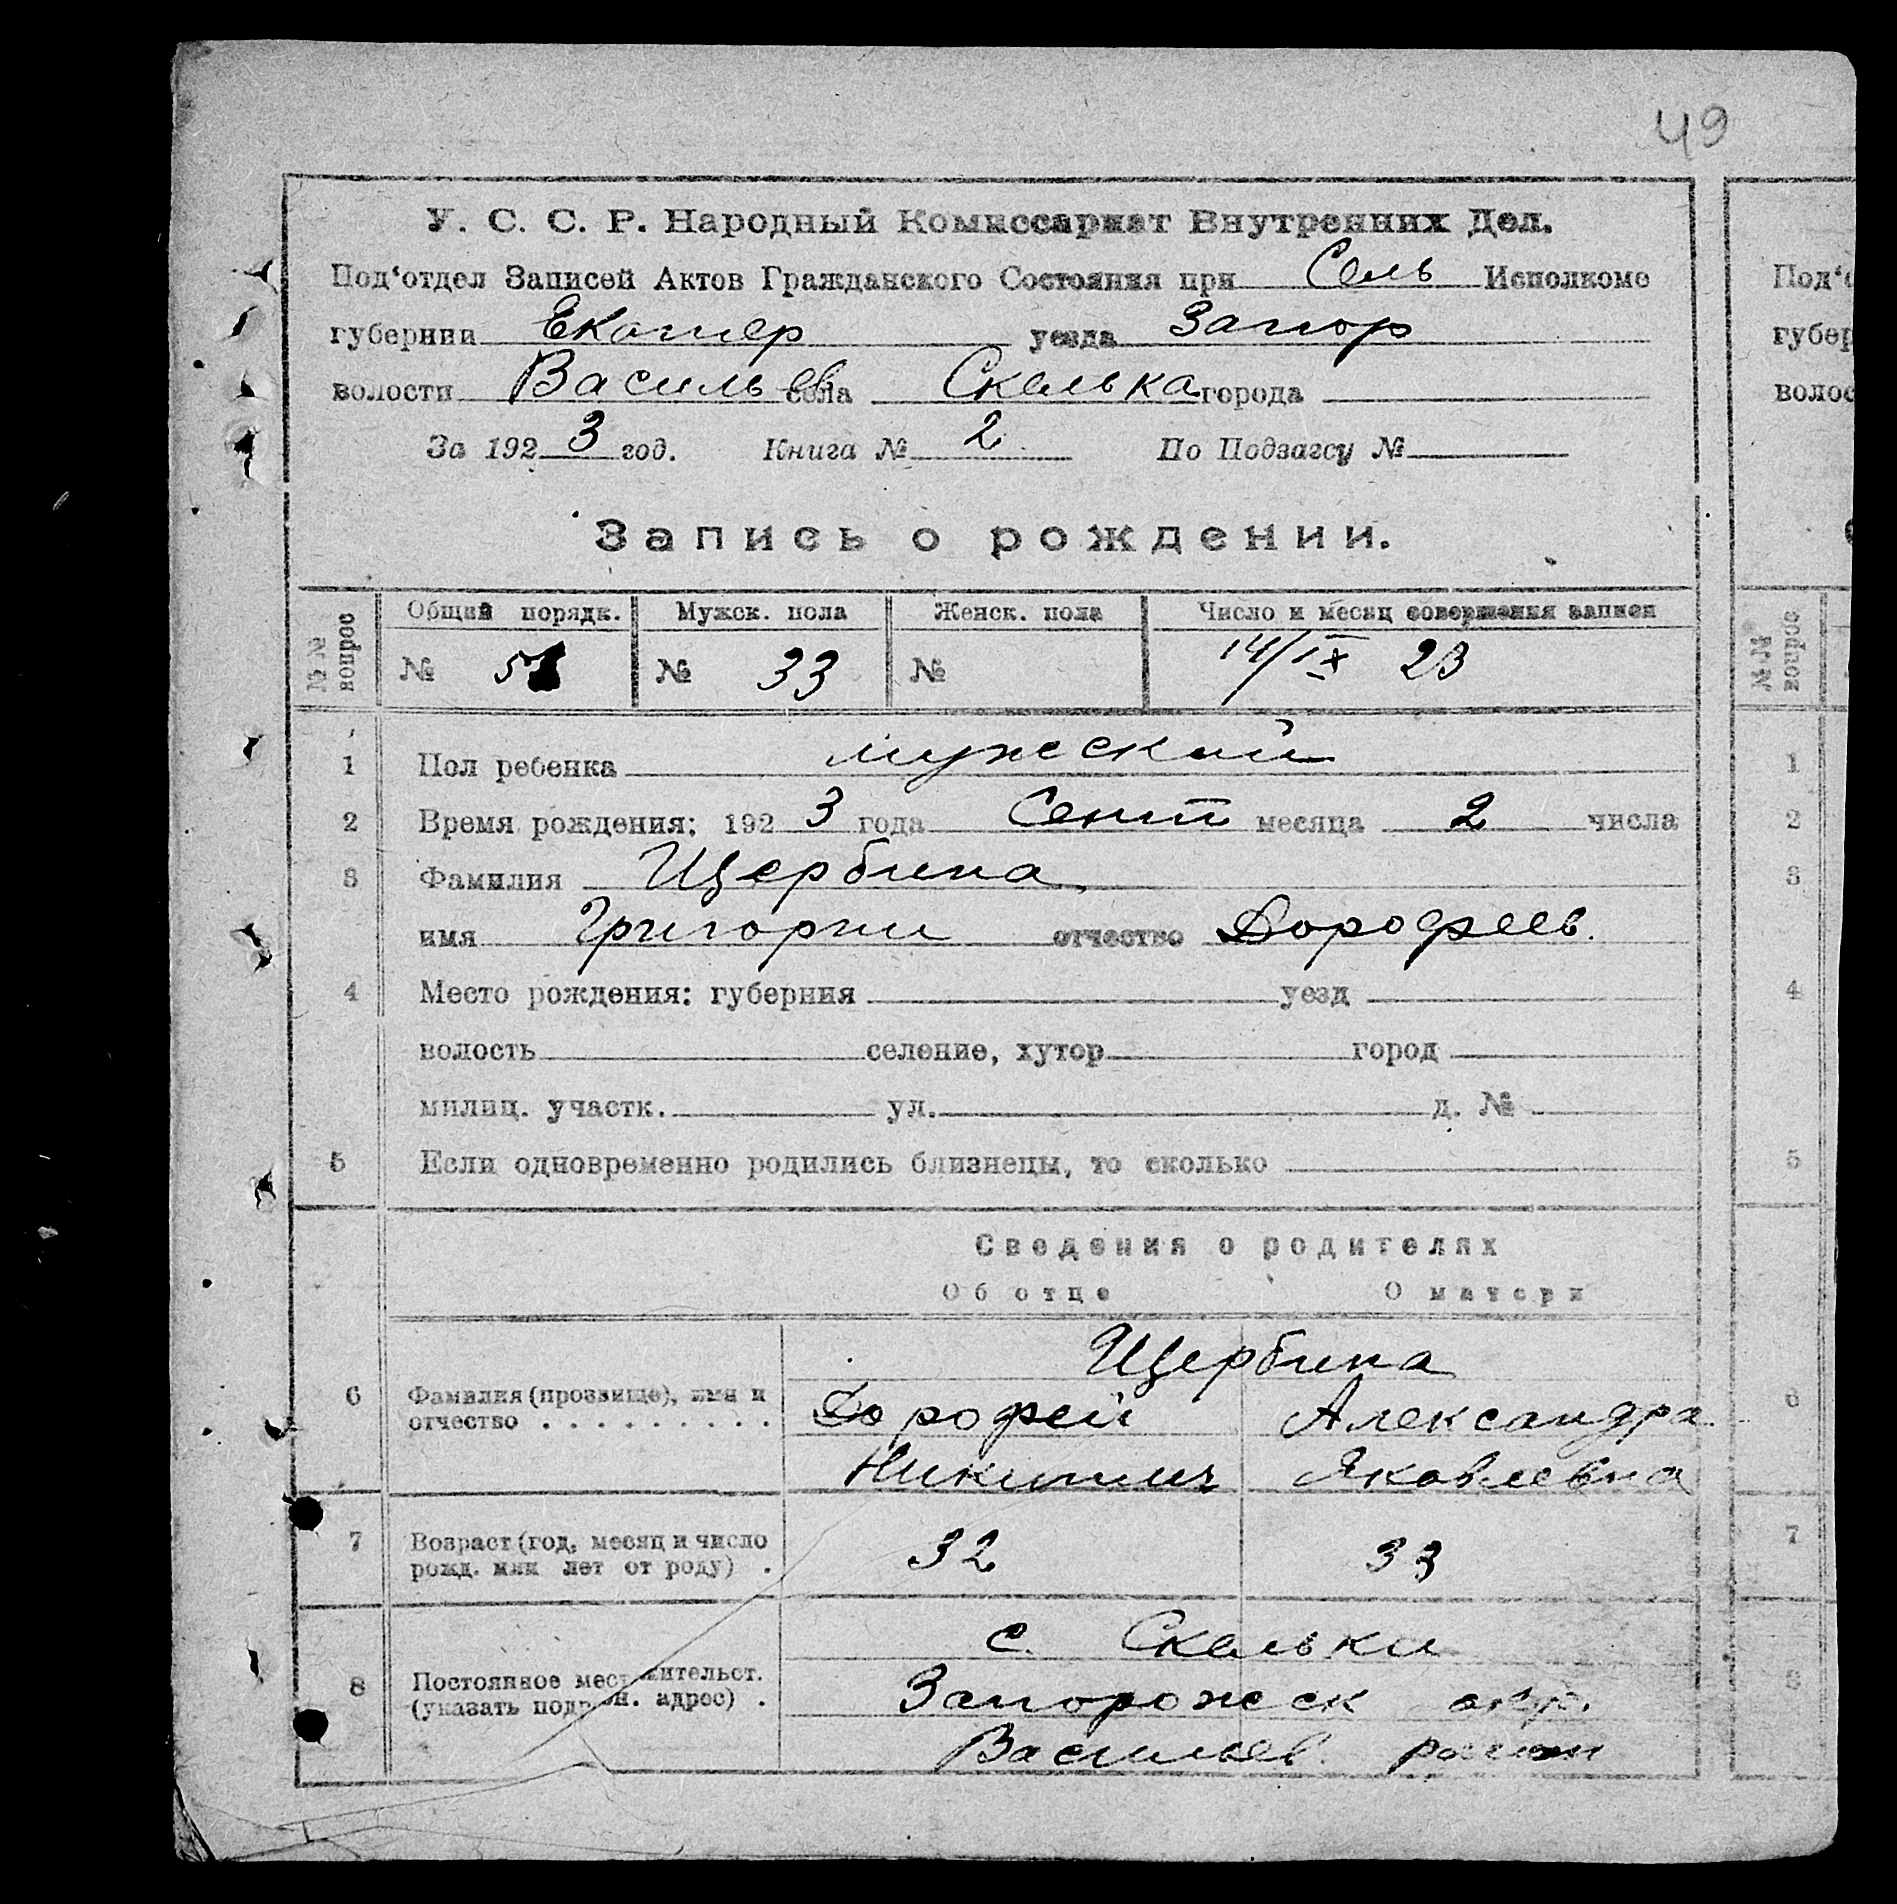 49
У. С. С. Р. Народный Комиссариат Внутренних Дел.
Под‘отдел Записей Актов Гражданского Состояния при Сель Исполкоме
губернии Екатер уезда Запор
волости Васильев села Скелька города
За 1923 год. Книга № 2 По Подзагсу №
Запись о рождении.
№№ вопрос Общий порядк. Мужск. пола Женск. пола Число и месяц совершения записи
№ № 33 № 14/IX 23
1 Пол ребенка мужеский
2 Время рождения: 1923 года Сент месяца 2 числа
3 Фамилия Щербина
имя Григорий отчество Дорофеев.
4 Место рождения: губерния уезд
волость селение, хутор город
милиц. участк. ул. д. №
5 Если одновременно родились близнецы, то сколько
Сведения о родителях
Об отце О матери
Щербина
6 Фамилия (прозвище), имя и Дорофей Александра
отчество . . . . . . . . . Никитич Яковлевна
7 Возраст (год, месяц и число 32 33
рожд. или лет от роду) .
с. Скельки
8 Постоянное местожительст. Запорожск окр.
(указать подробн. адрес) . Васильев. район
Под‘о
губер
волос
№№ вопрос
1
2
3
4
5
6
7
8